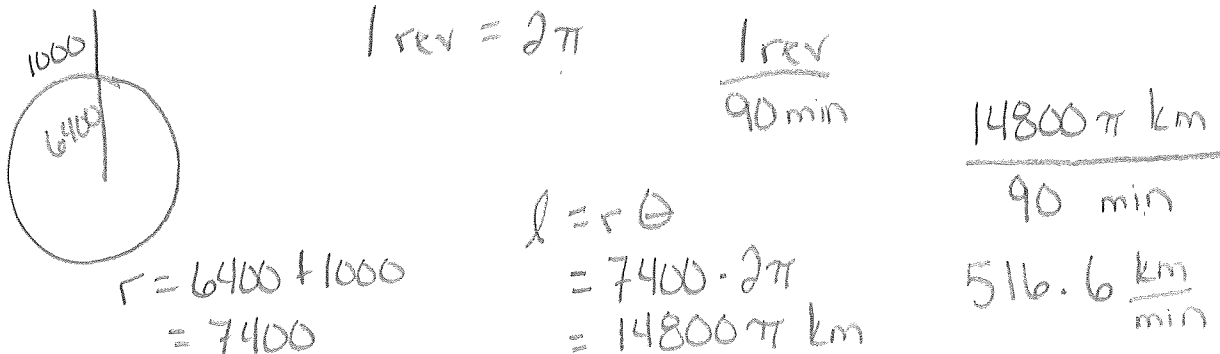 1000
6400
r = 6400 + 1000
= 7400
1 rev = 2π
1 rev
90 min
l = rθ
= 7400 · 2π
= 14800π km
14800π km
90 min
516.6 km
min